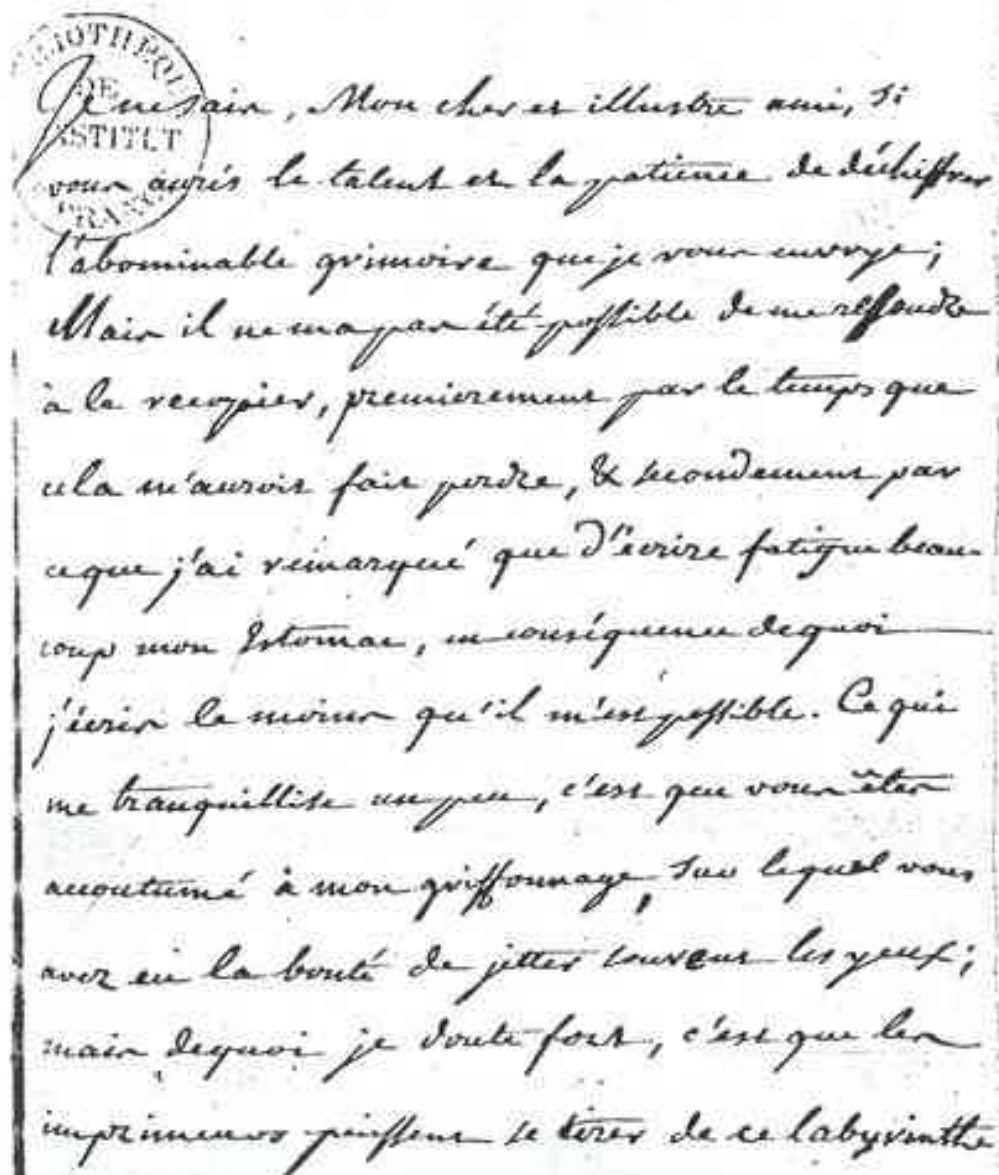 BIBLIOTHEQUE
DE
INSTITUT
FRANC
Je ne sais, Mon cher et illustre ami, si
vous aurés le talent et la patience de déchiffrer
l'abominable grimoire que je vous envoye;
Mais il ne m'a pas été possible de me resoudre
à le recopier, premierement par le temps que
cela m'auroit fait perdre, & secondement par
ce que j'ai remarqué que d'écrire fatigue beau-
coup mon Estomac, en conséquence de quoi
j'écris le moins qu'il m'est possible. Ce qui
me tranquillise un peu, c'est que vous êtes
accoutumé à mon griffonnage, sur lequel vous
avez eu la bonté de jetter souvent les yeux;
mais de quoi je doute fort, c'est que les
imprimeurs puissent se tirer de ce labyrinthe